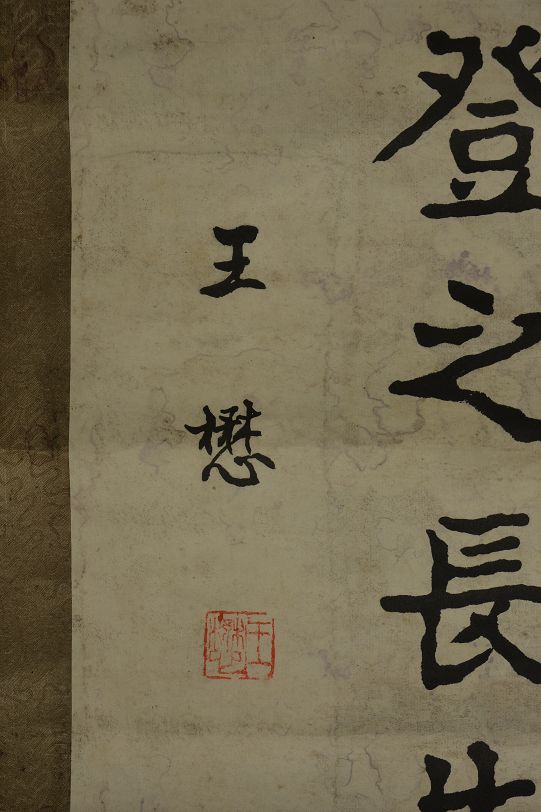 登之長
王懋
王懋